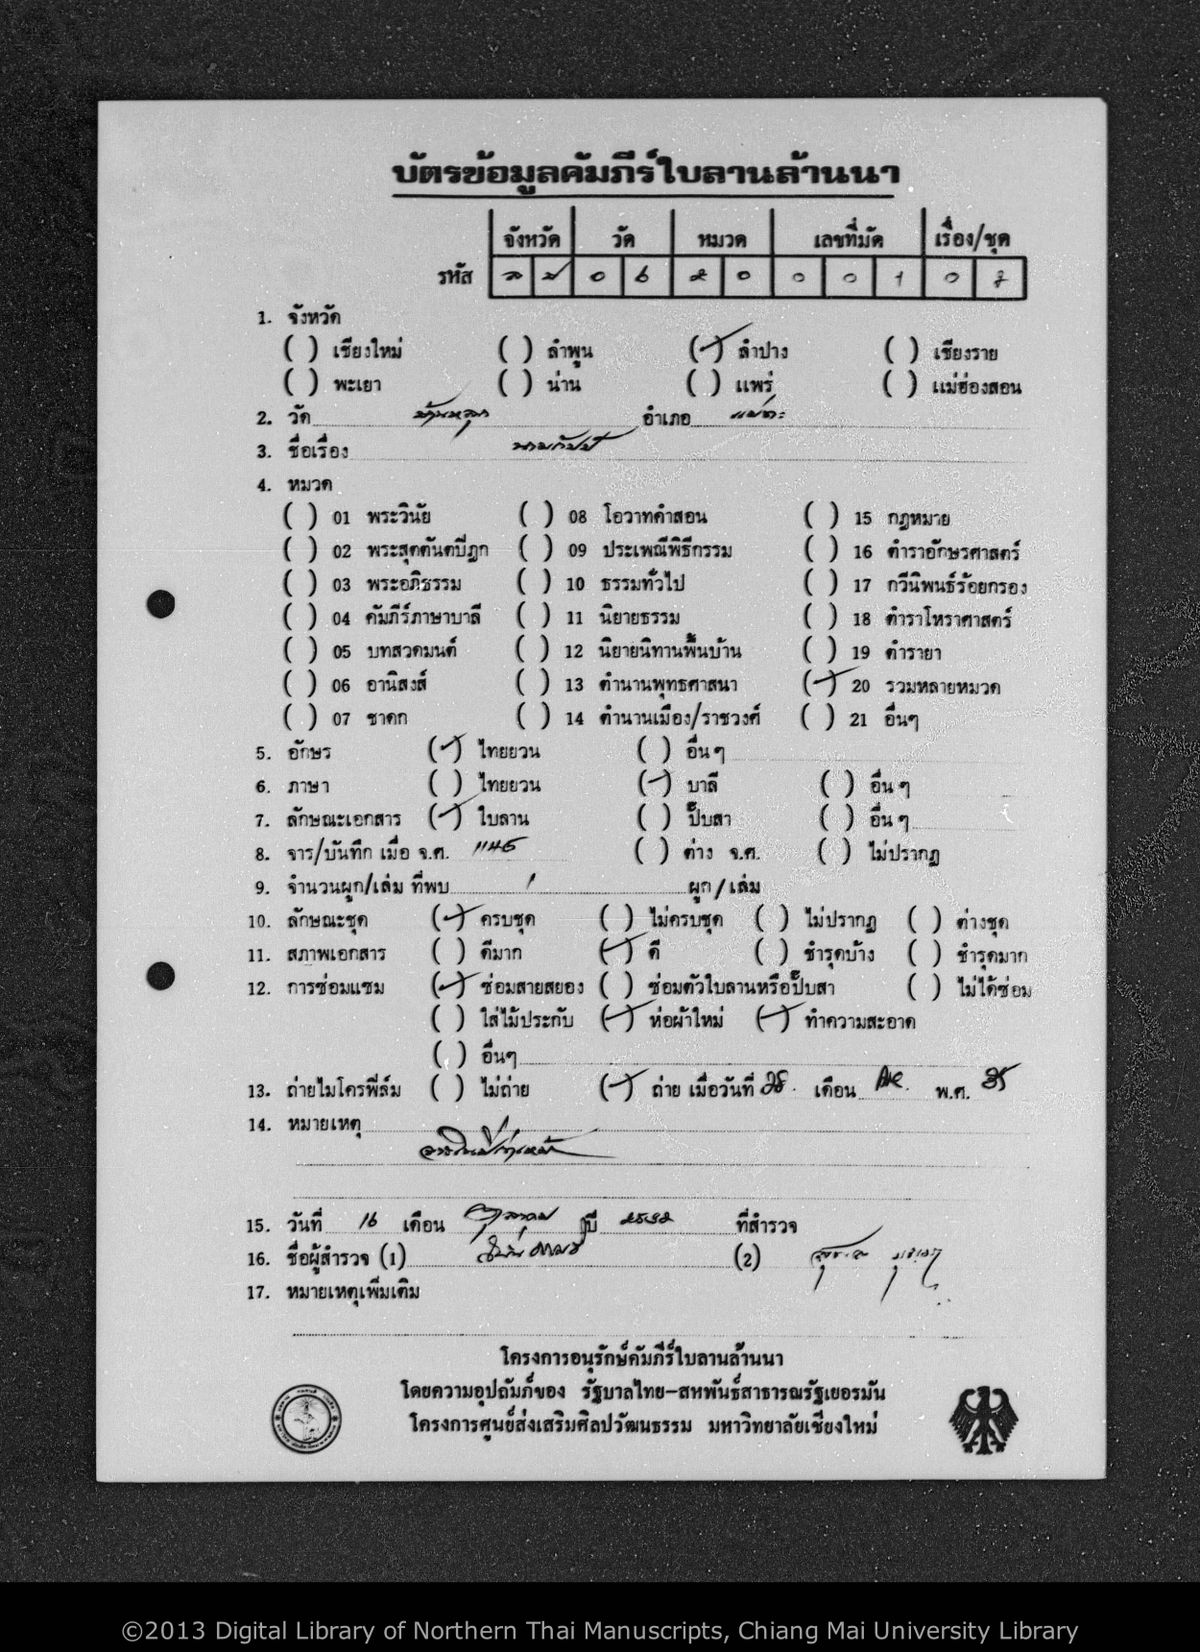 บัตรข้อมูลคัมภีร์ใบลานล้านนา
จังหวัด วัด หมวด เลขที่มัด เรื่อง/ชุด
รหัส ล ป 0 6 2 0 0 0 1 0 7
1. จังหวัด
( ) เชียงใหม่ ( ) ลำพูน (✓) ลำปาง ( ) เชียงราย
( ) พะเยา ( ) น่าน ( ) แพร่ ( ) แม่ฮ่องสอน
2. วัด บ้านหลุก อำเภอ แม่ทะ
3. ชื่อเรื่อง
4. หมวด
( ) 01 พระวินัย ( ) 08 โอวาทคำสอน ( ) 15 กฎหมาย
( ) 02 พระสุตตันตปีฎก ( ) 09 ประเพณีพิธีกรรม ( ) 16 ตำราอักษรศาสตร์
( ) 03 พระอภิธรรม ( ) 10 ธรรมทั่วไป ( ) 17 กวีนิพนธ์ร้อยกรอง
( ) 04 คัมภีร์ภาษาบาลี ( ) 11 นิยายธรรม ( ) 18 ตำราโหราศาสตร์
( ) 05 บทสวดมนต์ ( ) 12 นิยายนิทานพื้นบ้าน ( ) 19 ตำรายา
( ) 06 อานิสงส์ ( ) 13 ตำนานพุทธศาสนา (✓) 20 รวมหลายหมวด
( ) 07 ชาดก ( ) 14 ตำนานเมือง/ราชวงศ์ ( ) 21 อื่นๆ
5. อักษร (✓) ไทยยวน ( ) อื่น ๆ
6. ภาษา ( ) ไทยยวน (✓) บาลี ( ) อื่น ๆ
7. ลักษณะเอกสาร (✓) ใบลาน ( ) ปั๊บสา ( ) อื่น ๆ
8. จาร/บันทึก เมื่อ จ.ศ. 1145 ( ) ต่าง จ.ศ. ( ) ไม่ปรากฏ
9. จำนวนผูก/เล่ม ที่พบ 1 ผูก/เล่ม
10. ลักษณะชุด (✓) ครบชุด ( ) ไม่ครบชุด ( ) ไม่ปรากฏ ( ) ต่างชุด
11. สภาพเอกสาร ( ) ดีมาก (✓) ดี ( ) ชำรุดบ้าง ( ) ชำรุดมาก
12. การซ่อมแซม (✓) ซ่อมสายสยอง ( ) ซ่อมตัวใบลานหรือปั๊บสา ( ) ไม่ได้ซ่อม
( ) ใส่ไม้ประกับ (✓) ห่อผ้าใหม่ (✓) ทำความสะอาด
( ) อื่นๆ
13. ถ่ายไมโครฟีล์ม ( ) ไม่ถ่าย (✓) ถ่าย เมื่อวันที่ 28 เดือน พ.ศ. 35
14. หมายเหตุ
15. วันที่ 16 เดือน ตุลาคม ปี 2532 ที่สำรวจ
16. ชื่อผู้สำรวจ (1) (2)
17. หมายเหตุเพิ่มเติม
โครงการอนุรักษ์คัมภีร์ใบลานล้านนา
โดยความอุปถัมภ์ของ รัฐบาลไทย-สหพันธ์สาธารณรัฐเยอรมัน
โครงการศูนย์ส่งเสริมศิลปวัฒนธรรม มหาวิทยาลัยเชียงใหม่
©2013 Digital Library of Northern Thai Manuscripts, Chiang Mai University Library